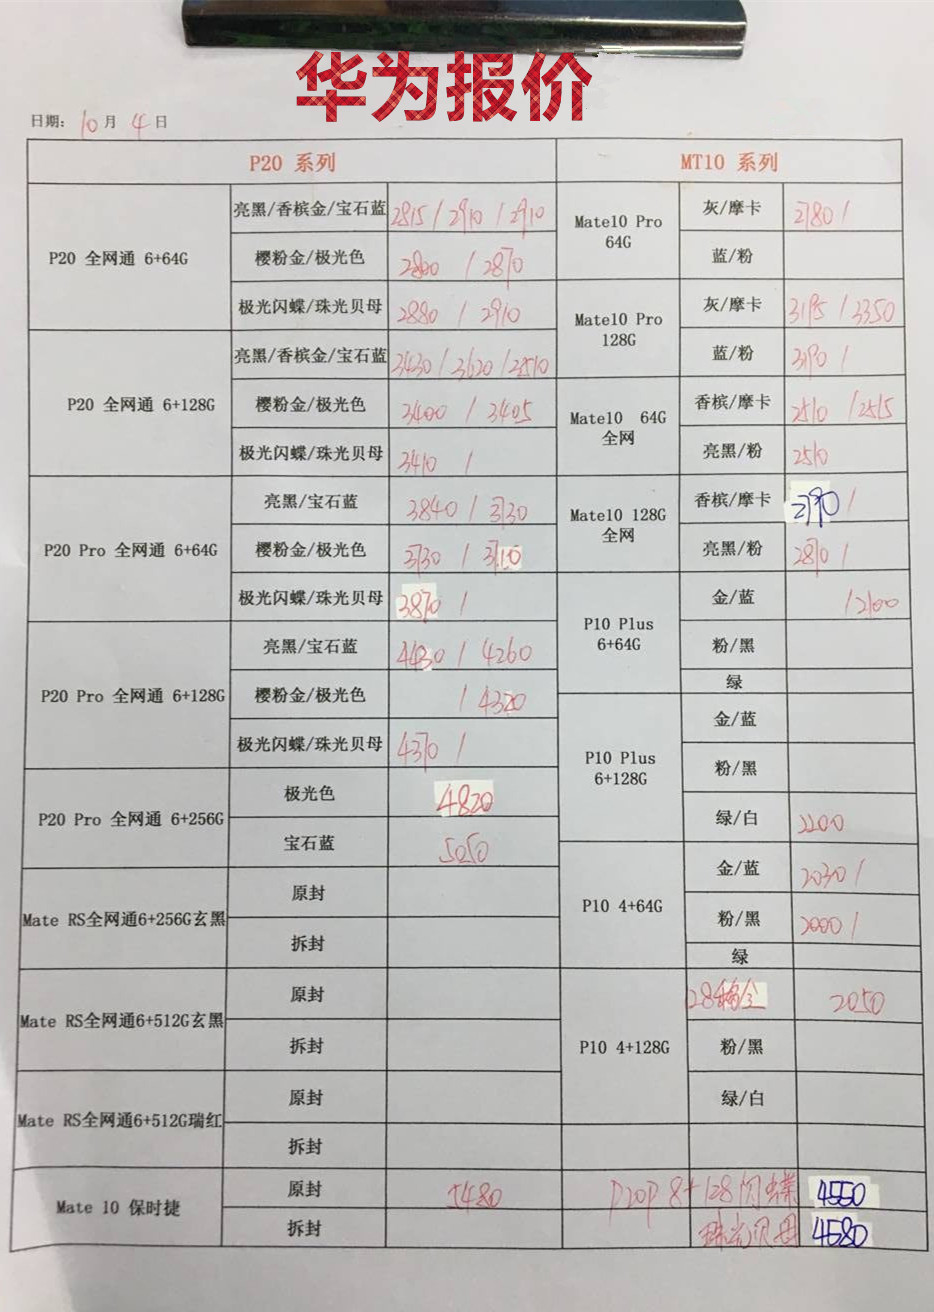 华为报价
日期: 10月 4日
P20 系列
MT10 系列
P20 全网通 6+64G
亮黑/香槟金/宝石蓝 2815 / 2910 / 2910
樱粉金/极光色 / 2870
极光闪蝶/珠光贝母 2880 / 2910
P20 全网通 6+128G
亮黑/香槟金/宝石蓝 3430 / 3620 / 3510
樱粉金/极光色 3400 / 3405
极光闪蝶/珠光贝母 3410 /
P20 Pro 全网通 6+64G
亮黑/宝石蓝 3840 / 3730
樱粉金/极光色 3730 /
极光闪蝶/珠光贝母 3870 /
P20 Pro 全网通 6+128G
亮黑/宝石蓝 4430 / 4260
樱粉金/极光色 / 4320
极光闪蝶/珠光贝母 4370 /
P20 Pro 全网通 6+256G
极光色 4820
宝石蓝 5050
Mate RS全网通6+256G玄黑
原封
拆封
Mate RS全网通6+512G玄黑
原封
拆封
Mate RS全网通6+512G瑞红
原封
拆封
Mate 10 保时捷
原封 5480
拆封
Mate10 Pro
64G
灰/摩卡 2780 /
蓝/粉
Mate10 Pro
128G
灰/摩卡 3195 / 3350
蓝/粉 3190 /
Mate10 64G
全网
香槟/摩卡 2510 / 2515
亮黑/粉 2510
Mate10 128G
全网
香槟/摩卡 2790 /
亮黑/粉 2870 /
P10 Plus
6+64G
金/蓝 / 2100
粉/黑
绿
P10 Plus
6+128G
金/蓝
粉/黑
绿/白 2200
P10 4+64G
金/蓝 2030 /
粉/黑 2000 /
绿
P10 4+128G
2050
粉/黑
绿/白
P20P 8+128闪蝶 4550
珠光贝母 4580